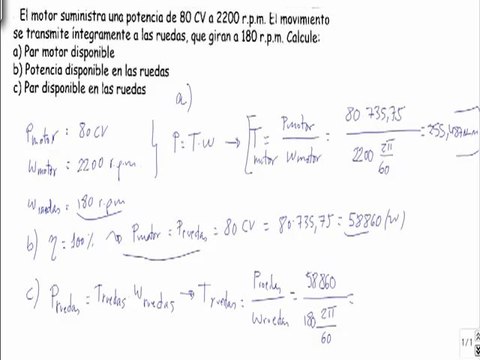 El motor suministra una potencia de 80 CV a 2200 r.p.m. El movimiento
se transmite íntegramente a las ruedas, que giran a 180 r.p.m. Calcule:
a) Par motor disponible
b) Potencia disponible en las ruedas
c) Par disponible en las ruedas
a)
Pmotor = 80 CV
Wmotor = 2200 r.p.m
Wruedas = 180 r.p.m
P = T·W → Tmotor = Pmotor / Wmotor = 80 · 735,75 / (2200 2π/60) = 255,487
b) η = 100% → Pmotor = Pruedas = 80 CV = 80·735,75 = 58860 (W)
c) Pruedas = Truedas Wruedas → Truedas = Pruedas / Wruedas = 58860 / (180 2π/60) =
1/1